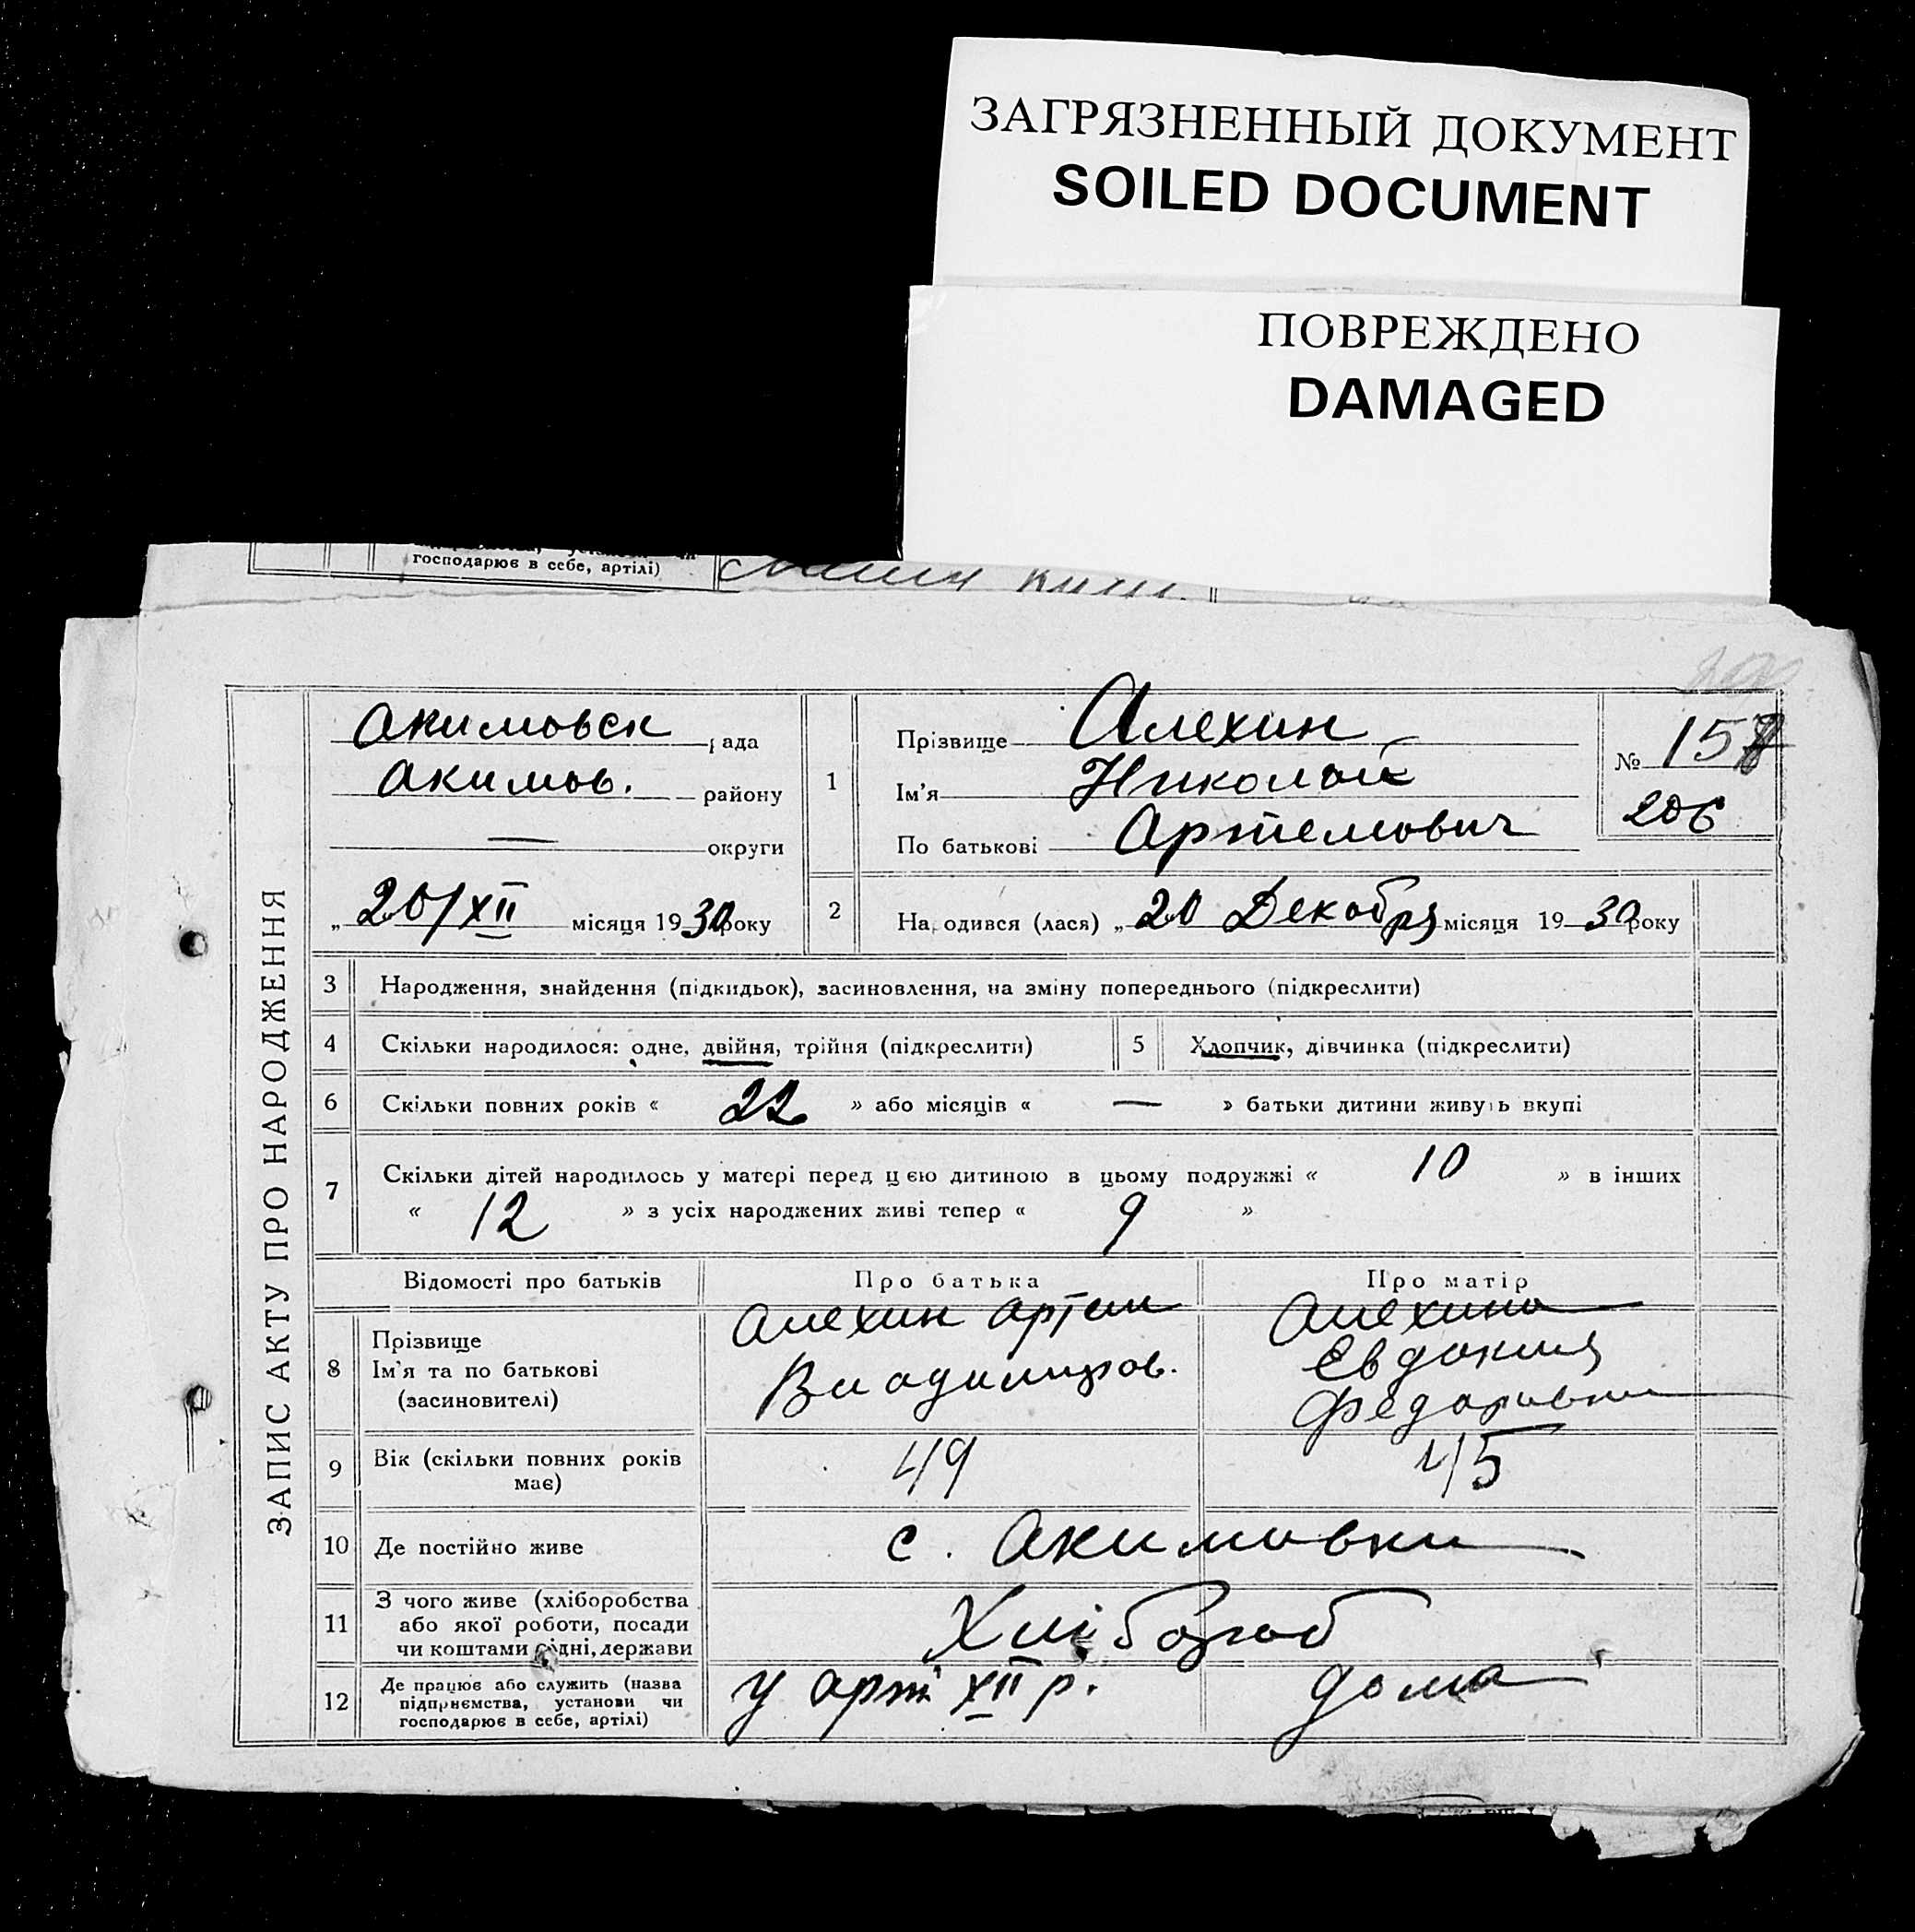 ЗАГРЯЗНЕННЫЙ ДОКУМЕНТ
SOILED DOCUMENT
ПОВРЕЖДЕНО
DAMAGED
господарює в себе, артілі)
ЗАПИС АКТУ ПРО НАРОДЖЕННЯ
Акимовск рада
Акимов. району
— округи
„ 20/XII місяця 1930 року
1
Прізвище Алехин
Ім'я Николай
По батькові Артемович
№ 157
206
2 Народився (лася) „ 20 Декабря місяця 1930 року
3 Народження, знайдення (підкидьок), засиновлення, на зміну попереднього (підкреслити)
4 Скільки народилося: одне, двійня, трійня (підкреслити) 5 Хлопчик, дівчинка (підкреслити)
6 Скільки повних років « 22 » або місяців « — » батьки дитини живуть вкупі
7 Скільки дітей народилось у матері перед цією дитиною в цьому подружжі « 10 » в інших
« 12 » з усіх народжених живі тепер « 9 »
Відомості про батьків Про батька Про матір
8 Прізвище
Ім'я та по батькові
(засиновителі)
Алехин Артем
Владимиров.
Алехина
Евдокия
Федоровна
9 Вік (скільки повних років
має)
49 45
10 Де постійно живе с. Акимовки
11 З чого живе (хліборобства
або якої роботи, посади
чи коштами рідні, держави
Хлібороб
12 Де працює або служить (назва
підприємства, установи чи
господарює в себе, артілі)
у арт XII р. дома